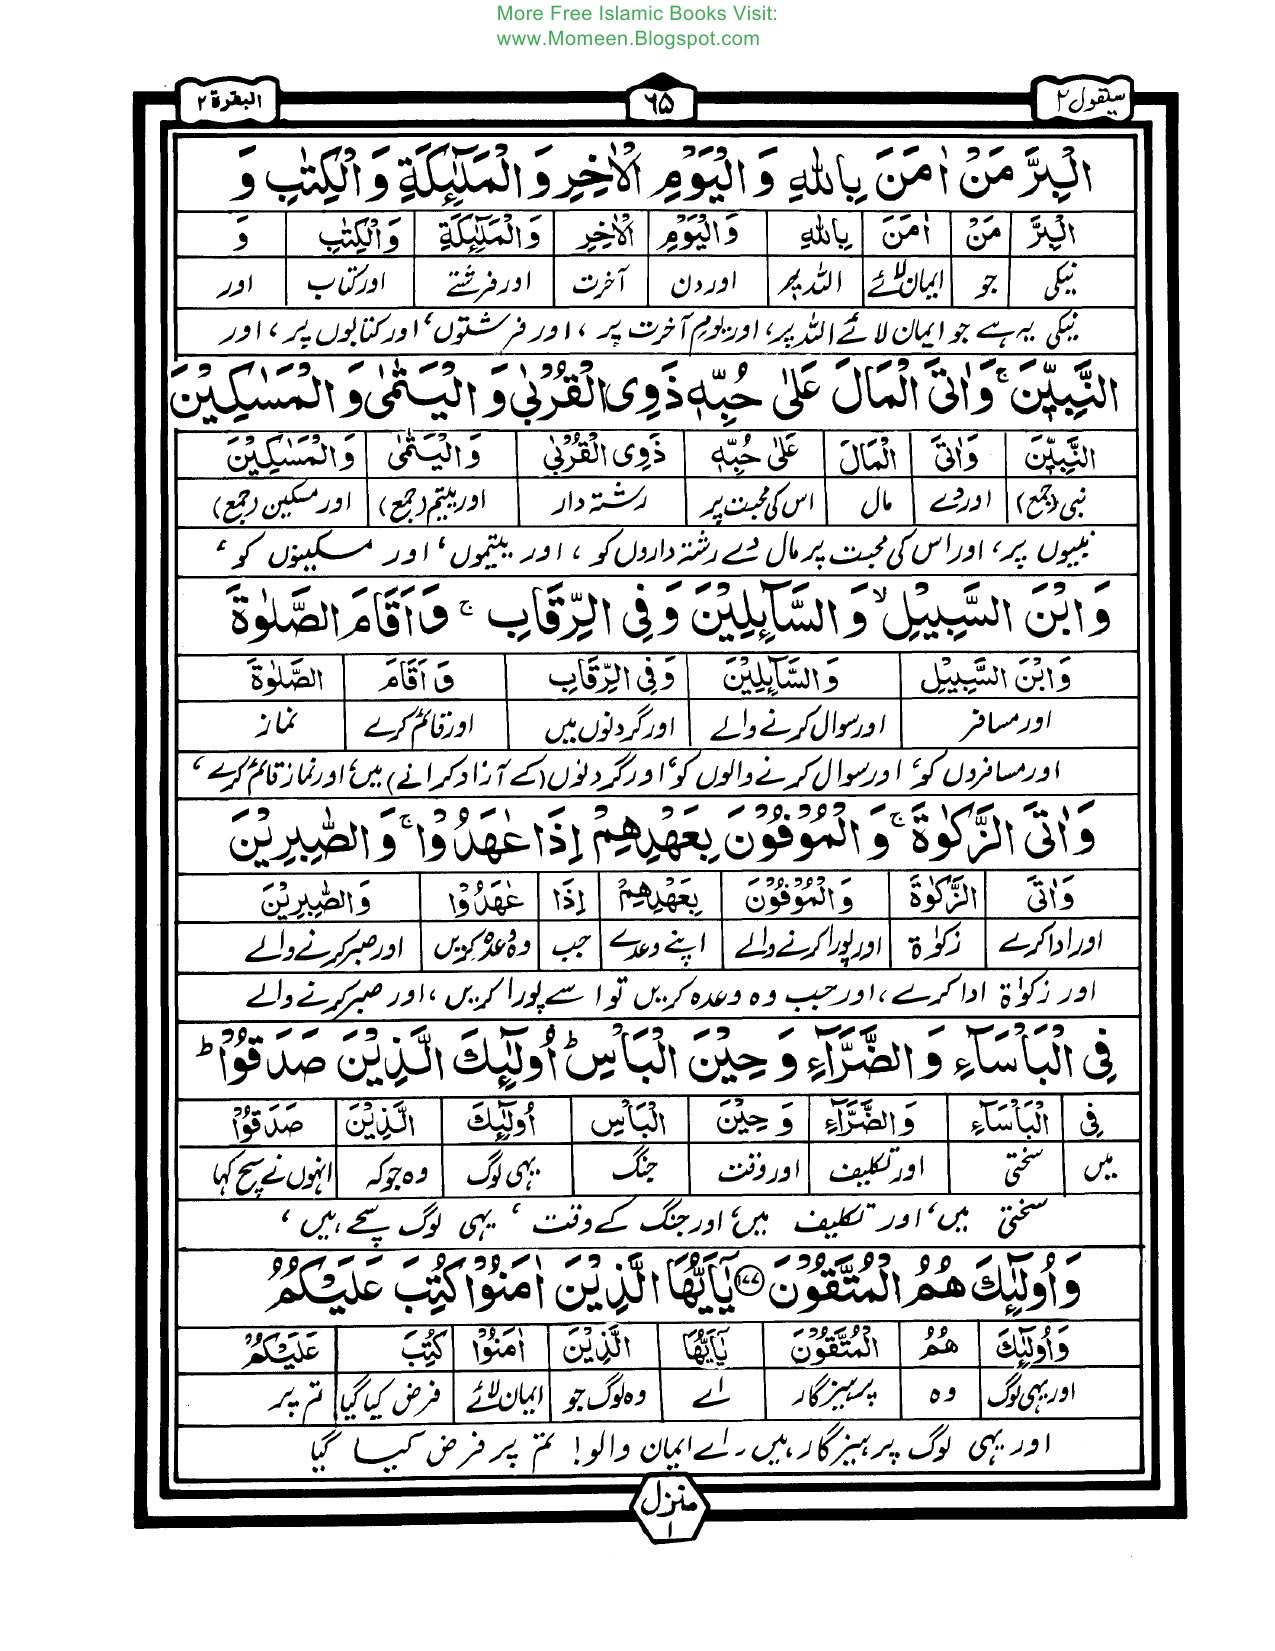 More Free Islamic Books Visit:
www.Momeen.Blogspot.com
سيقول ٢ ٦٥ البقرة ٢
الْبِرَّ مَنْ اٰمَنَ بِاللّٰهِ وَ الْيَوْمِ الْاٰخِرِ وَ الْمَلٰٓئِكَةِ وَ الْكِتٰبِ وَ
الْبِرَّ مَنْ اٰمَنَ بِاللّٰهِ وَ الْيَوْمِ الْاٰخِرِ وَ الْمَلٰٓئِكَةِ وَ الْكِتٰبِ وَ
نیکی جو ایمان لائے اللہ پر اور دن آخرت اور فرشتے اور کتاب اور
نیکی یہ ہے جو ایمان لائے اللہ پر، اور یومِ آخرت پر ، اور فرشتوں، اور کتابوں پر ، اور
النَّبِيّٖنَ ۚ وَ اٰتَى الْمَالَ عَلٰى حُبِّهٖ ذَوِى الْقُرْبٰى وَ الْيَتٰمٰى وَ الْمَسٰكِيْنَ
النَّبِيّٖنَ وَ اٰتَى الْمَالَ عَلٰى حُبِّهٖ ذَوِى الْقُرْبٰى وَ الْيَتٰمٰى وَ الْمَسٰكِيْنَ
نبی (جمع) اور دے مال اس کی محبت پر رشتہ دار اور یتیم (جمع) اور مسکین (جمع)
نبیوں پر، اور اس کی محبت پر مال دے رشتہ داروں کو ، اور یتیموں، اور مسکینوں کو ،
وَ ابْنَ السَّبِيْلِ ۙ وَ السَّآئِلِيْنَ وَ فِى الرِّقَابِ ۚ وَ اَقَامَ الصَّلٰوةَ
وَ ابْنَ السَّبِيْلِ وَ السَّآئِلِيْنَ وَ فِى الرِّقَابِ وَ اَقَامَ الصَّلٰوةَ
اور مسافر اور سوال کرنے والے اور گردنوں میں اور قائم کرے نماز
اور مسافروں کو، اور سوال کرنے والوں کو، اور گردنوں (کے آزاد کرانے) میں، اور نماز قائم کرے ،
وَ اٰتَى الزَّكٰوةَ ۚ وَ الْمُوْفُوْنَ بِعَهْدِهِمْ اِذَا عٰهَدُوْا ۚ وَ الصّٰبِرِيْنَ
وَ اٰتَى الزَّكٰوةَ وَ الْمُوْفُوْنَ بِعَهْدِهِمْ اِذَا عٰهَدُوْا وَ الصّٰبِرِيْنَ
اور ادا کرے زکوٰة اور پورا کرنے والے اپنے وعدے جب وہ وعدہ کریں اور صبر کرنے والے
اور زکوٰة ادا کرے ، اور جب وہ وعدہ کریں تو اسے پورا کریں ، اور صبر کرنے والے
فِى الْبَاْسَآءِ وَ الضَّرَّآءِ وَ حِيْنَ الْبَاْسِ ؕ اُولٰٓئِكَ الَّذِيْنَ صَدَقُوْا ؕ
فِى الْبَاْسَآءِ وَ الضَّرَّآءِ وَ حِيْنَ الْبَاْسِ اُولٰٓئِكَ الَّذِيْنَ صَدَقُوْا
میں سختی اور تکلیف اور وقت جنگ یہی لوگ وہ جو کہ انہوں نے سچ کہا
سختی میں، اور تکلیف میں، اور جنگ کے وقت ، یہی لوگ سچے ہیں ،
وَ اُولٰٓئِكَ هُمُ الْمُتَّقُوْنَ ۝۱۷۷ يٰٓاَيُّهَا الَّذِيْنَ اٰمَنُوْا كُتِبَ عَلَيْكُمُ
وَ اُولٰٓئِكَ هُمُ الْمُتَّقُوْنَ يٰٓاَيُّهَا الَّذِيْنَ اٰمَنُوْا كُتِبَ عَلَيْكُمُ
اور یہی لوگ وہ پرہیزگار اے وہ لوگ جو ایمان لائے فرض کیا گیا تم پر
اور یہی لوگ پرہیزگار ہیں ۔ اے ایمان والو! تم پر فرض کیا گیا
منزل
١